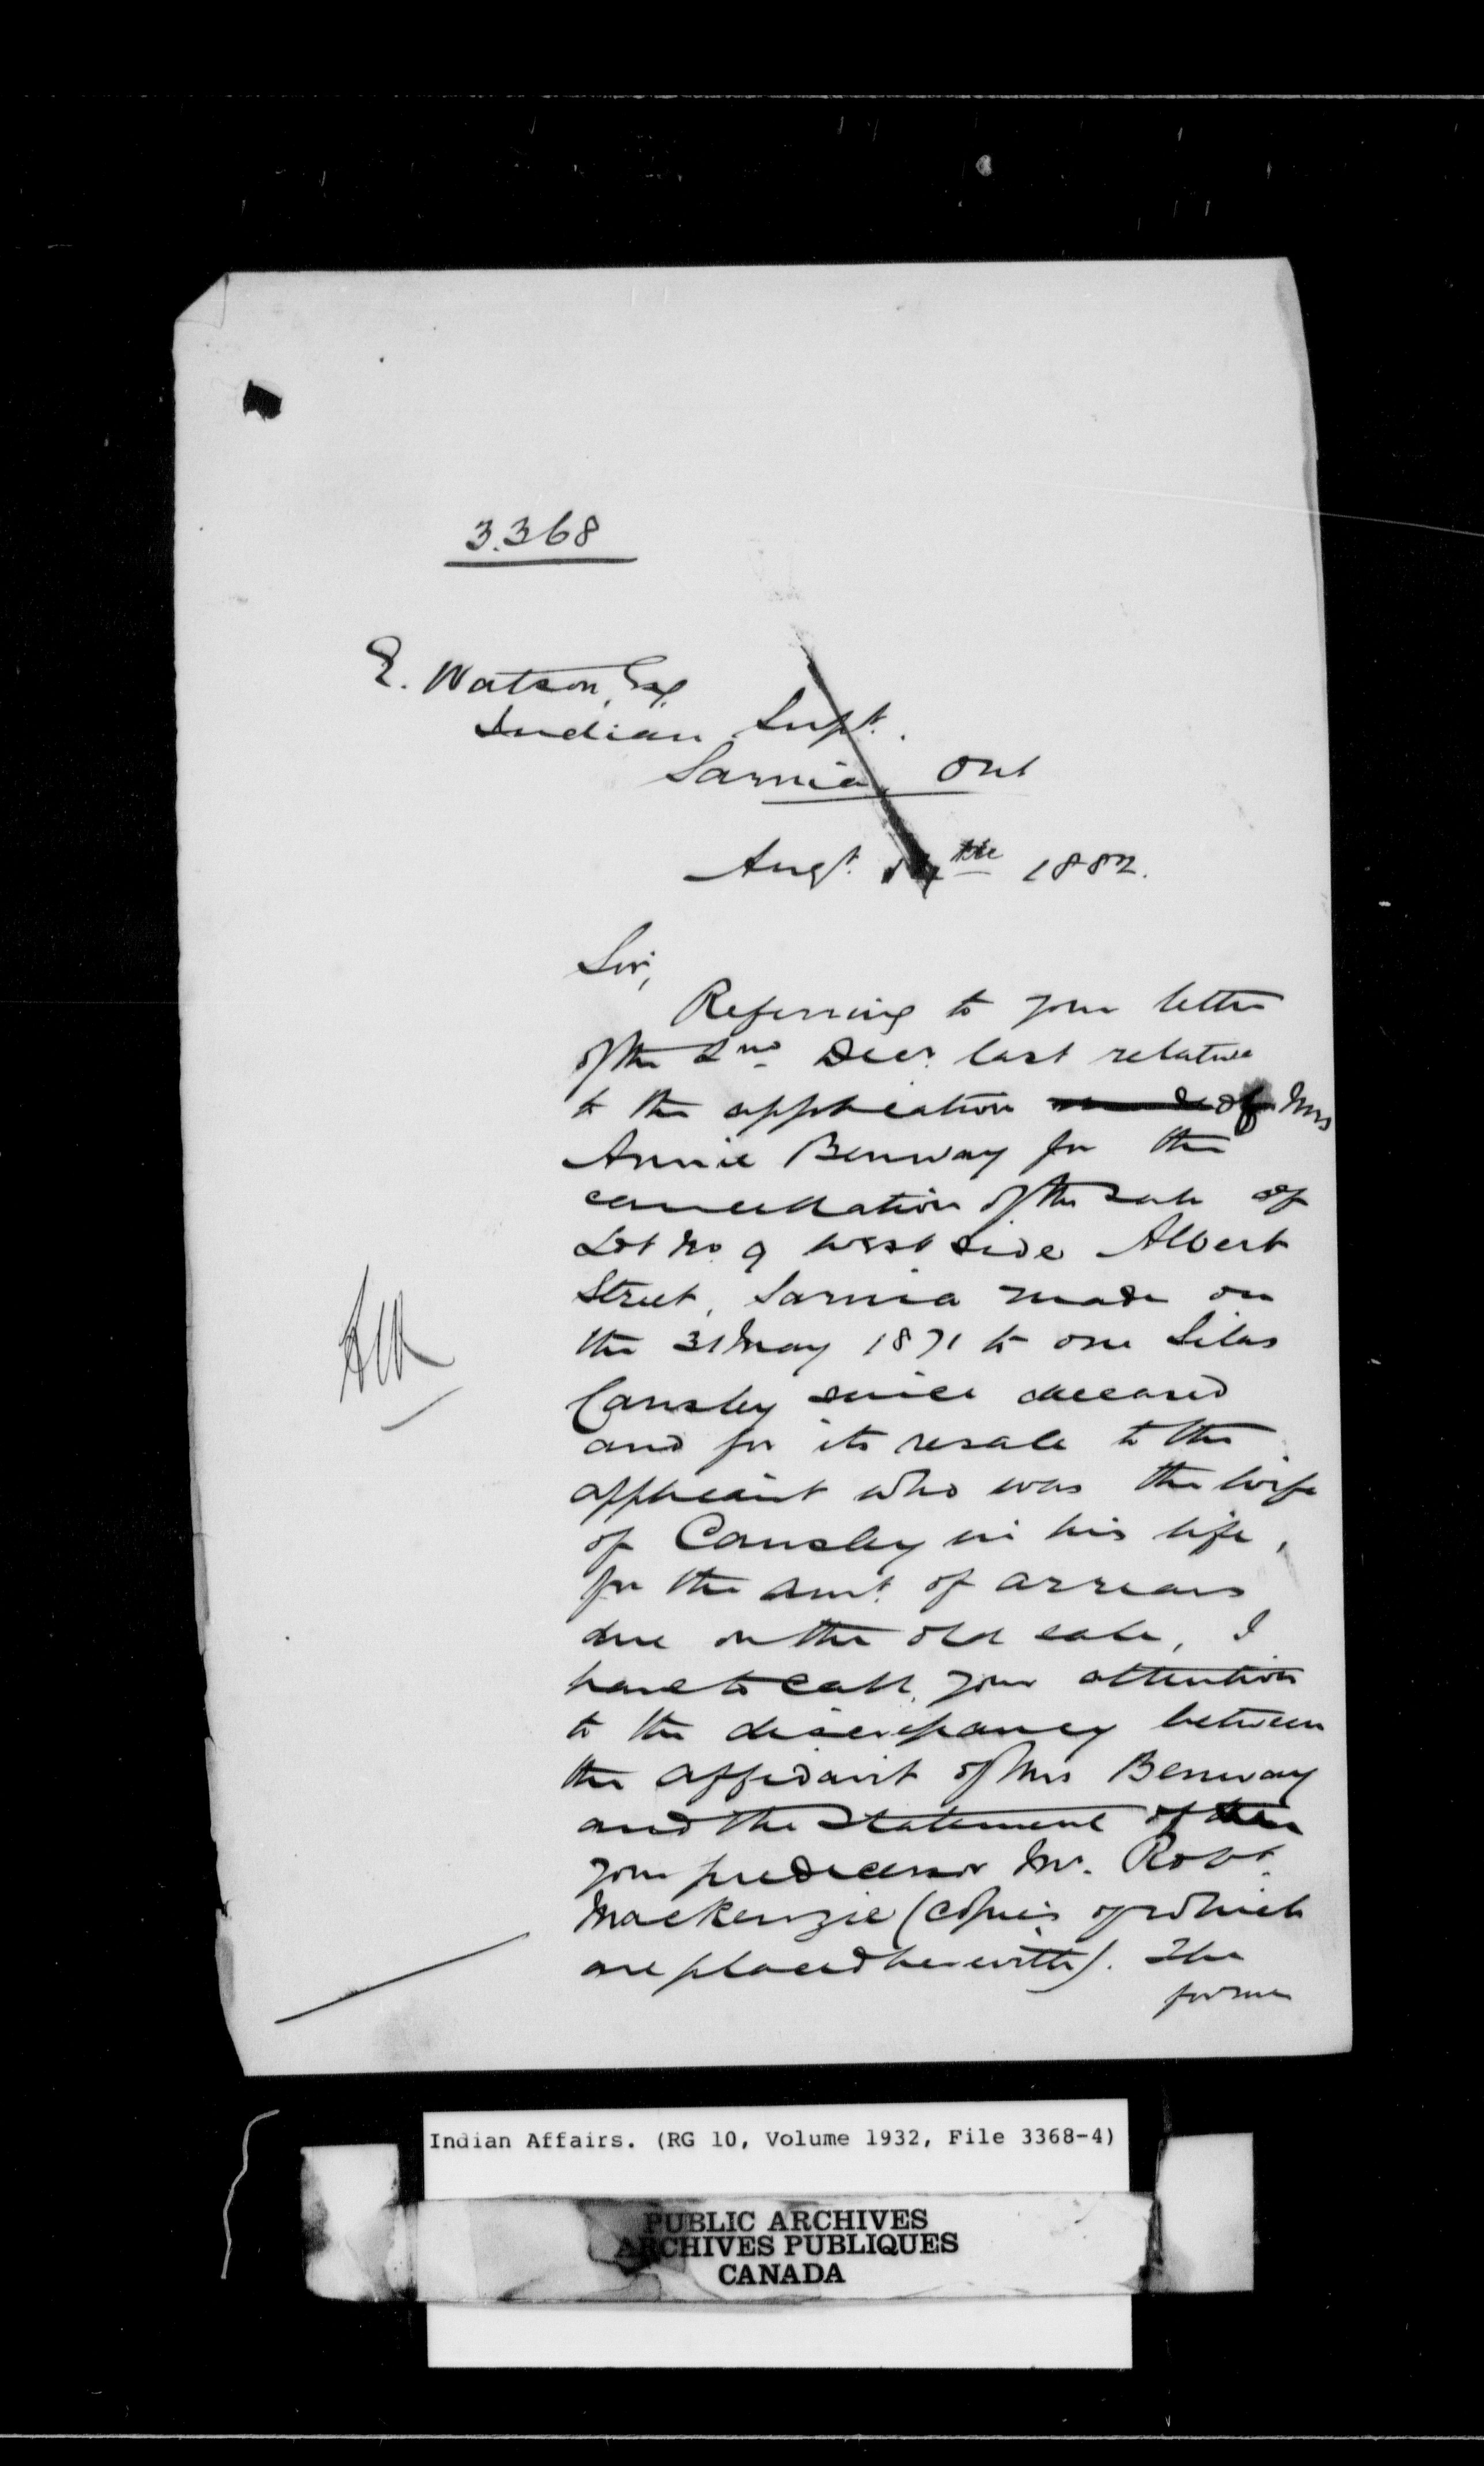 3.368
E. Watson, Esq.
Indian Supt.
Sarnia, Ont
Augt. 14th 1882.
Sir,
Referring to your letter
of the 2nd Decr. last relative
to the application of Mrs
Annie Benway for the
cancellation of the sale of
Lot No. 9 west side Albert
Street, Sarnia made on
the 31 May 1871 to one Silas
Cansley since deceased
and for its resale to the
applicant who was the wife
of Cansley in his life,
for the amt. of arrears
due on the old sale, I
have to call your attention
to the discrepancy between
the affidavit of Mrs Benway
and the statement of
your predecessor Mr. Robt.
Mackenzie (copies of which
are placed herewith). The
former
Indian Affairs. (RG 10, Volume 1932, File 3368-4)
PUBLIC ARCHIVES
ARCHIVES PUBLIQUES
CANADA